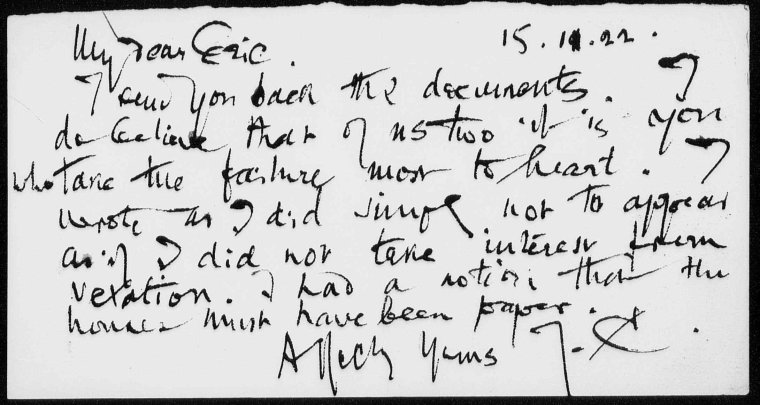 My dear Eric. 15.11.22.
I send you back the documents. I
do believe that of us two it is you
who take the failure most to heart. I
wrote as I did simply not to appear
as if I did not take interest from
vexation. I had a notion that the
houses must have been paper.
Affectly Yours J. C.